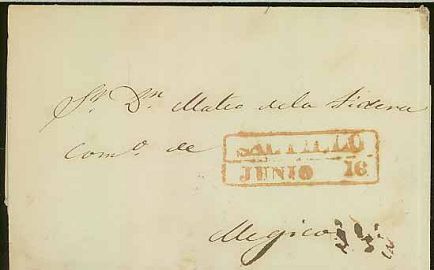 Sr. Dn. Mateo de la Tixera
Como. de
SALTILLO
JUNIO 16
Megico